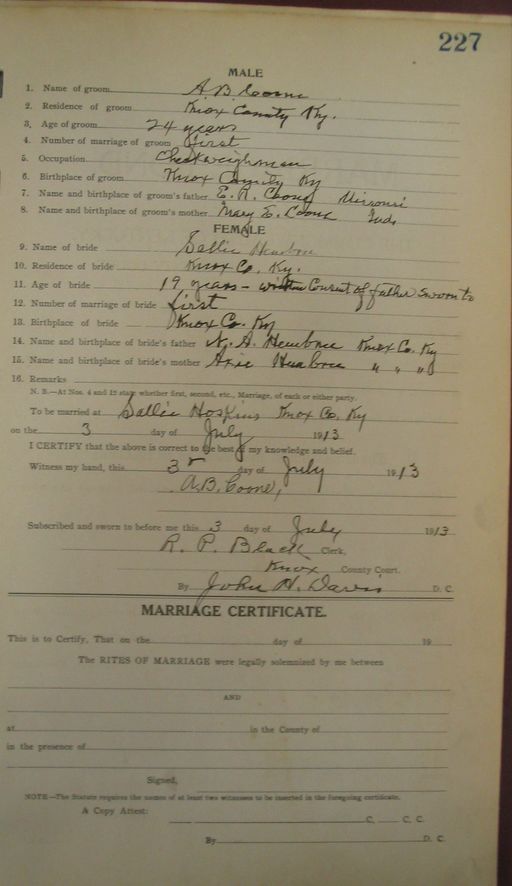 227
MALE
1. Name of groom A B Coone
2. Residence of groom Knox County Ky.
3. Age of groom 24 years
4. Number of marriage of groom first
5. Occupation Checkweighman
6. Birthplace of groom Knox County Ky
7. Name and birthplace of groom's father E. R. Coone Missouri
8. Name and birthplace of groom's mother Mary E. Coone Ind.
FEMALE
9. Name of bride Sallie
10. Residence of bride Knox Co. Ky.
11. Age of bride 19 years - written Consent of father sworn to
12. Number of marriage of bride first
13. Birthplace of bride Knox Co. Ky
14. Name and birthplace of bride's father Knox Co. Ky
15. Name and birthplace of bride's mother " " "
16. Remarks
N. B.—At Nos. 4 and 12 state whether first, second, etc., Marriage, of each or either party.
To be married at Sallie Hoskins Knox Co. Ky
on the 3 day of July 1913
I CERTIFY that the above is correct to the best of my knowledge and belief.
Witness my hand, this 3r day of July 1913
A.B. Coone,
Subscribed and sworn to before me this 3 day of July 1913
R. P. Black Clerk,
Knox County Court.
By John H. Davis D. C.
MARRIAGE CERTIFICATE.
This is to Certify, That on the day of 19
The RITES OF MARRIAGE were legally solemnized by me between
AND
at in the County of
in the presence of
Signed,
NOTE—The Statute requires the names of at least two witnesses to be inserted in the foregoing certificate.
A Copy Attest:
C. C. C.
By D. C.